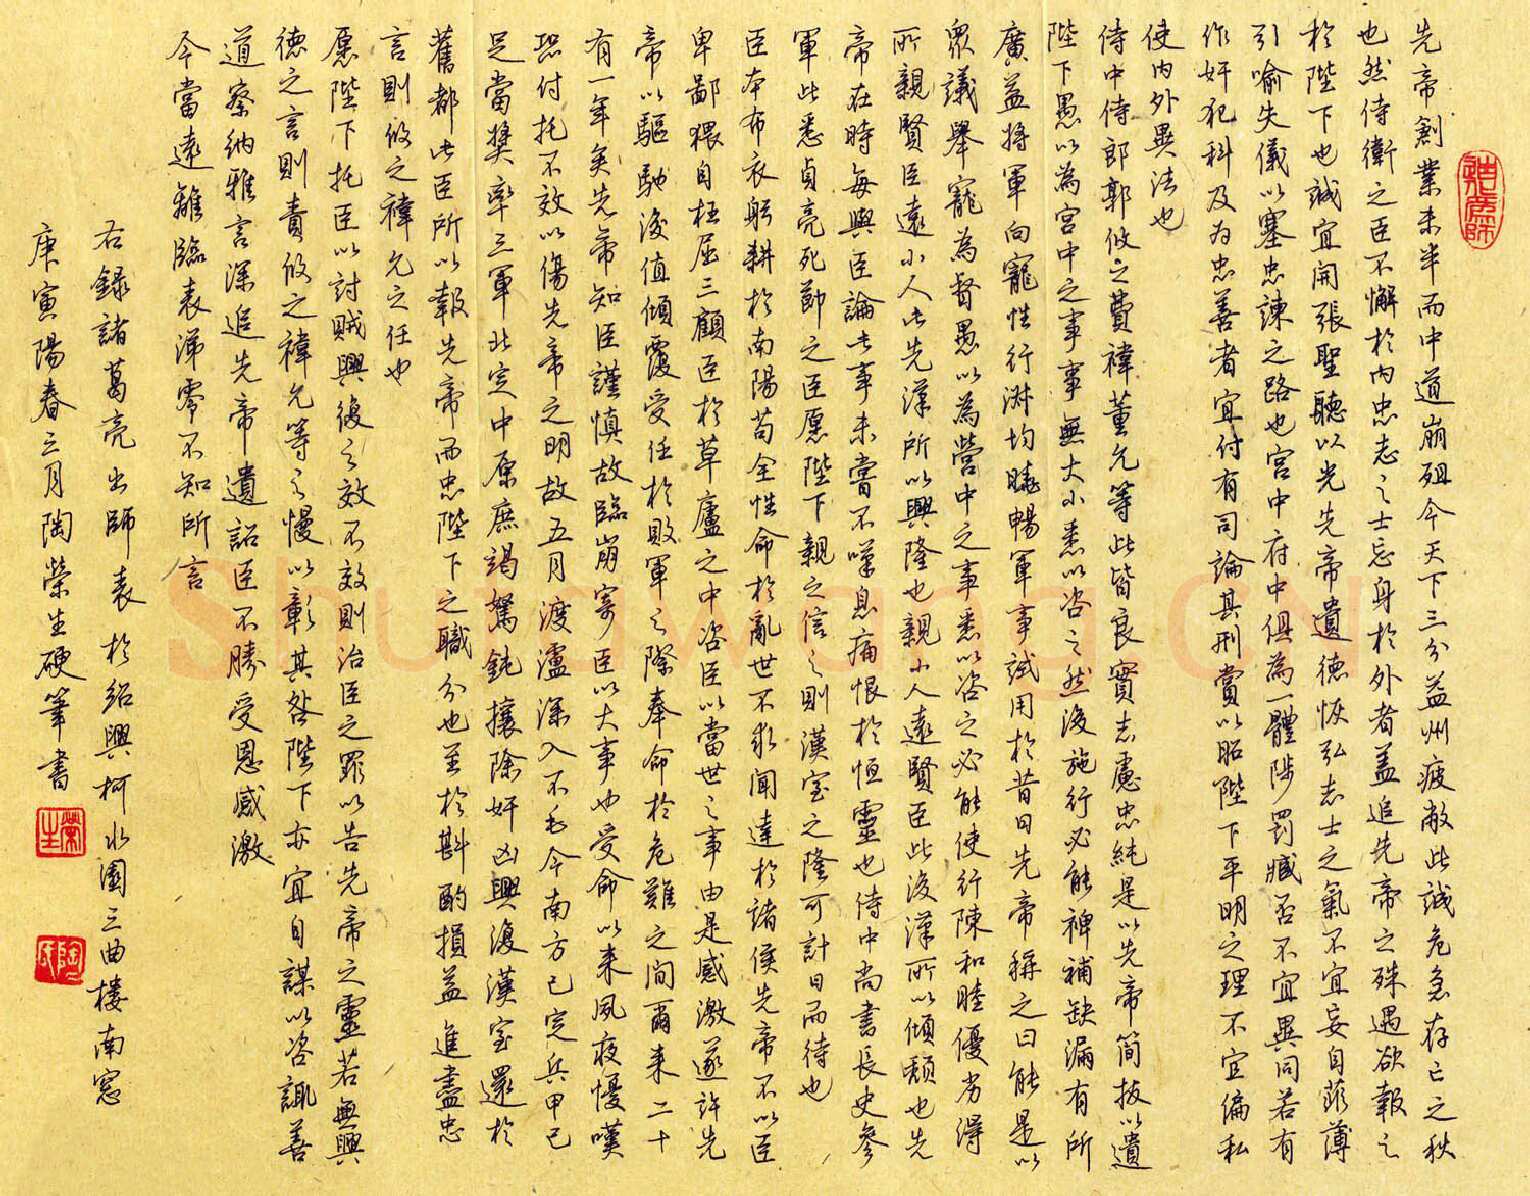 先帝創業未半而中道崩殂今天下三分益州疲敝此誠危急存亡之秋
也然侍衛之臣不懈於內忠志之士忘身於外者蓋追先帝之殊遇欲報之
於陛下也誠宜開張聖聽以光先帝遺德恢弘志士之氣不宜妄自菲薄
引喻失儀以塞忠諫之路也宮中府中俱為一體陟罰臧否不宜異同若有
作奸犯科及為忠善者宜付有司論其刑賞以昭陛下平明之理不宜偏私
使內外異法也
侍中侍郎郭攸之費禕董允等此皆良實志慮忠純是以先帝簡拔以遺
陛下愚以為宮中之事事無大小悉以咨之然後施行必能裨補缺漏有所
廣益將軍向寵性行淑均曉暢軍事試用於昔日先帝稱之曰能是以
眾議舉寵為督愚以為營中之事悉以咨之必能使行陳和睦優劣得
所親賢臣遠小人此先漢所以興隆也親小人遠賢臣此後漢所以傾頹也先
帝在時每與臣論此事未嘗不嘆息痛恨於恒靈也侍中尚書長史參
軍此悉貞亮死節之臣愿陛下親之信之則漢室之隆可計日而待也
臣本布衣躬耕於南陽苟全性命於亂世不求聞達於諸侯先帝不以臣
卑鄙猥自枉屈三顧臣於草廬之中咨臣以當世之事由是感激遂許先
帝以驅馳後值傾覆受任於敗軍之際奉命於危難之間爾來二十
有一年矣先帝知臣謹慎故臨崩寄臣以大事也受命以來夙夜憂嘆
恐付托不效以傷先帝之明故五月渡瀘深入不毛今南方已定兵甲已
足當獎率三軍北定中原庶竭駑鈍攘除奸凶興復漢室還於
舊都此臣所以報先帝而忠陛下之職分也至於斟酌損益進盡忠
言則攸之禕允之任也
愿陛下托臣以討賊興復之效不效則治臣之罪以告先帝之靈若無興
德之言則責攸之禕允等之慢以彰其咎陛下亦宜自謀以咨諏善
道察納雅言深追先帝遺詔臣不勝受恩感激
今當遠離臨表涕零不知所言
右錄諸葛亮出師表於紹興柯水園三曲樓南窓
庚寅陽春三月陶榮生硬筆書
榮生
陶氏
Shufawang.CN